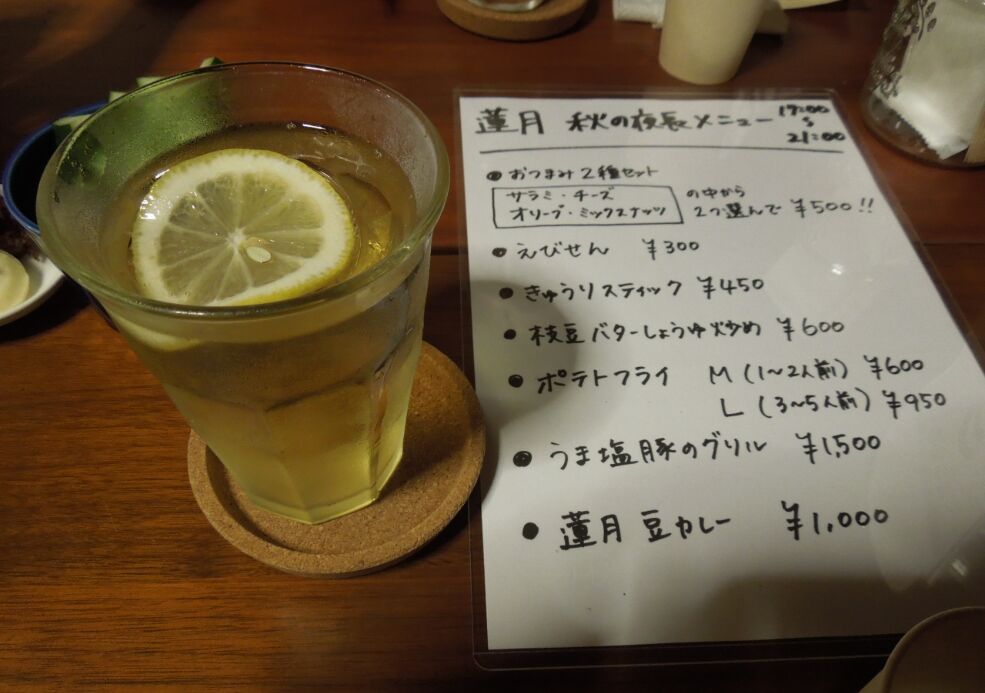 蓮月 秋の夜長メニュー 19:00
〜
21:00
● おつまみ2種セット
サラミ・チーズ
オリーブ・ミックスナッツ
の中から
2つ選んで ¥500!!
● えびせん ¥300
● きゅうりスティック ¥450
● 枝豆バターしょうゆ炒め ¥600
● ポテトフライ M (1〜2人前) ¥600
L (3〜5人前) ¥950
● うま塩豚のグリル ¥1,500
● 蓮月 豆カレー ¥1,000